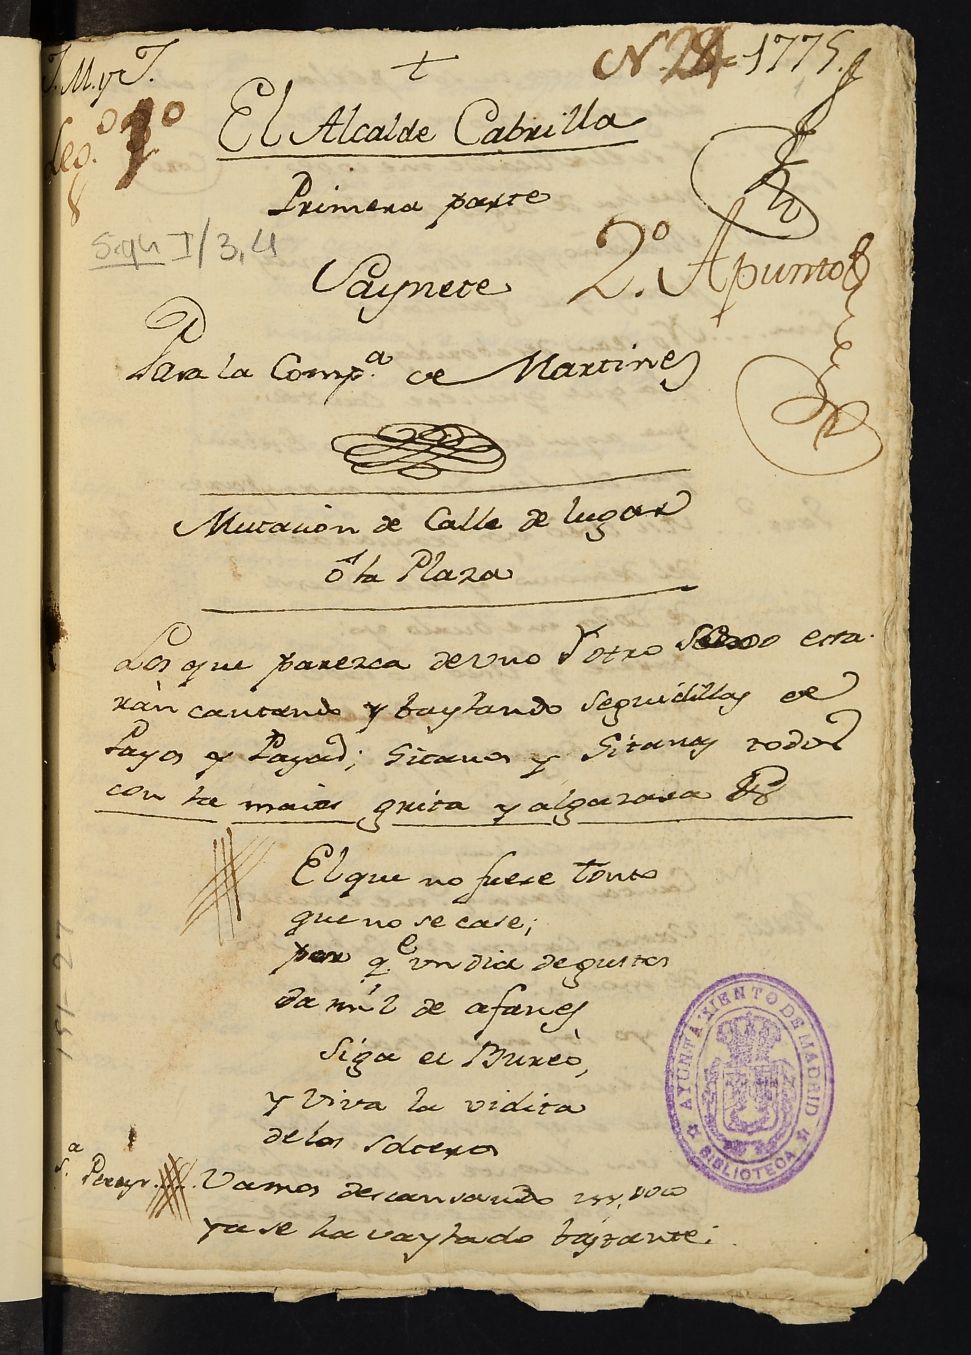 J. M. y J.
+
N. 24 1775.
Leg.º 1º
8
El Alcalde Cabrilla
Primera parte
Sign I/3,4
Saynete
2º. Apunto
Para la Comp.ª de Martinez
Mutacion de Calle de lugar
ó la Plaza
Los que parezca de uno y otro Sexo esta-
rán cantando y baylando Seguidillas de
Payos y Payas; Gitanos y Gitanas todos
con la maior grita y algazara
El que no fuere tonto
que no se case;
por q.e un dia de gustos
da mil de afanes
Siga el Bureo,
y viva la vidita
de los solteros
S.ª Pereyr.... Vamos descansando un poco
ya se ha vaylado bastante.
151-27
AYUNTAMIENTO DE MADRID
BIBLIOTECA